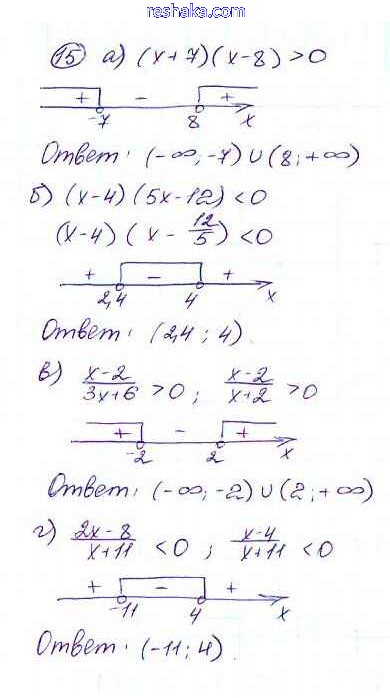 reshaka.com
15 а) (x+7)(x-8)>0
+ - +
-7 8 x
Ответ: (-∞; -7) ∪ (8; +∞)
б) (x-4)(5x-12)<0
(x-4)(x - 12/5) <0
+ - +
2,4 4 x
Ответ: (2,4; 4)
в) x-2/3x+6 >0; x-2/x+2 >0
+ - +
-2 2 x
Ответ: (-∞; -2) ∪ (2; +∞)
г) 2x-8/x+11 <0; x-4/x+11 <0
+ - +
-11 4 x
Ответ: (-11; 4)